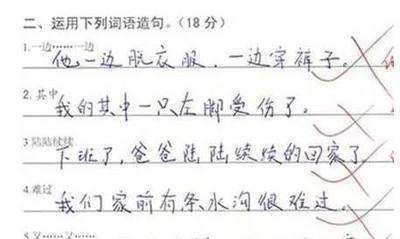 二、运用下列词语造句。（18 分）
1.一边……一边
他一边脱衣服，一边穿裤子。
2.其中
我的其中一只左脚受伤了。
3 陆陆续续
下班了，爸爸陆陆续续的回家了。
4.难过
我们家前有条水沟很难过。
5.又……又……